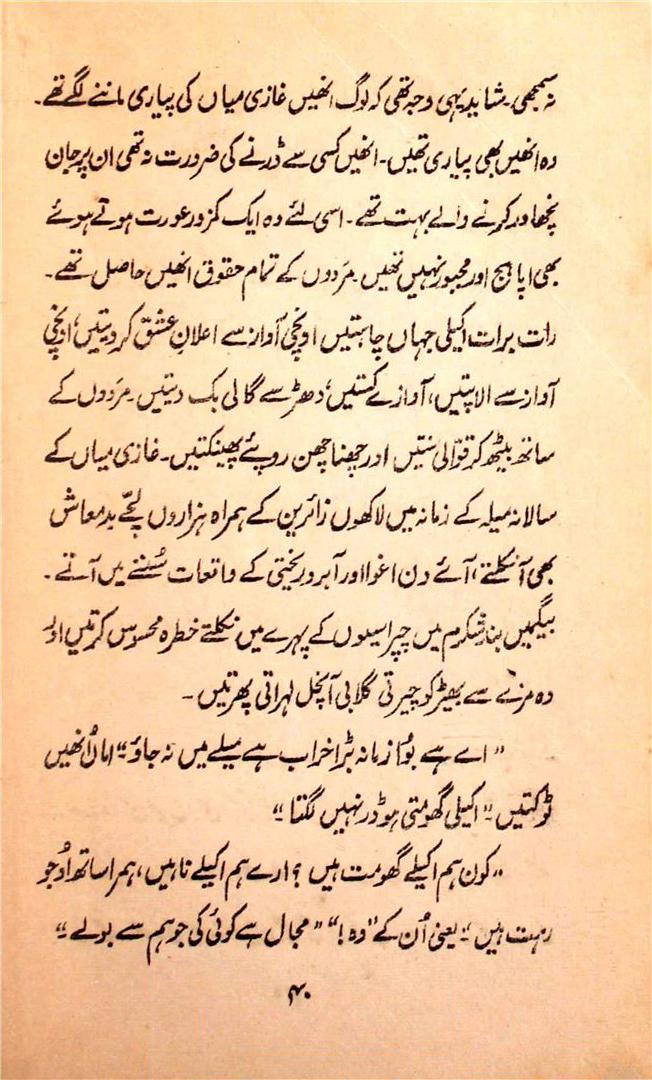 نہ سمجھی۔ شاید یہی وجہ تھی کہ لوگ انھیں غازی میاں کی پیاری ماننے لگے تھے۔
وہ انھیں بھی پیاری تھیں۔ انھیں کسی سے ڈرنے کی ضرورت نہ تھی ان پر جان
نچھاور کرنے والے بہت تھے۔ اسی لئے وہ ایک کمزور عورت ہوتے ہوئے
بھی اپاہج اور مجبور نہیں تھیں۔ مَردوں کے تمام حقوق انھیں حاصل تھے۔
رات برات اکیلی جہاں چاہتیں اونچی آواز سے اعلانِ عشق کر دیتیں؛ اونچی
آواز سے الاپتیں، آوازے کستیں؛ دھڑ سے گالی بک دیتیں۔ مردوں کے
ساتھ بیٹھ کر قوّالی سنتیں اور چھنا چھن روپئے پھینکتیں۔ غازی میاں کے
سالانہ میلہ کے زمانہ میں لاکھوں زائرین کے ہمراہ ہزاروں لُچّے بدمعاش
بھی آ نکلتے، آئے دن اغوا اور آبروریختی کے واقعات سُننے میں آتے۔
بیگمیں بند شکرم میں چپراسیوں کے پہرے میں نکلتے خطرہ محسوس کرتیں اور
وہ مزے سے بھیڑ کو چیرتی گلابی آنچل لہراتی پھرتیں۔
”اے ہے بوُا زمانہ بڑا خراب ہے میلے میں نہ جاؤ“ اماں اُنھیں
ٹوکتیں ”اکیلی گھومتی ہو ڈر نہیں لگتا“
”کون ہم اکیلے گھومت ہیں؟ ارے ہم اکیلے ناہیں، ہمرا ساتھ اُو جو
رہت ہیں“ یعنی اُن کے ”وہ!“ ”مجال ہے کوئی کی جو ہم سے بولے“
۴۰